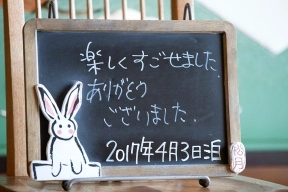 楽しくすごせました。
ありがとう
ございました。
2017年4月3日